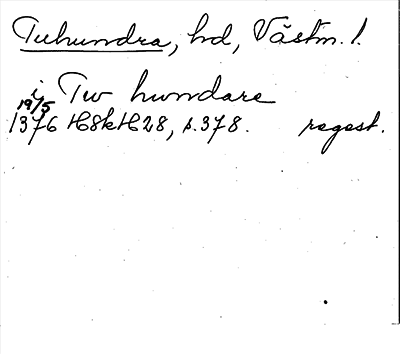 Tuhundra, hd, Västm. l.
i Tw hundare
19/5
1376 HSH H28, s. 378. regest.